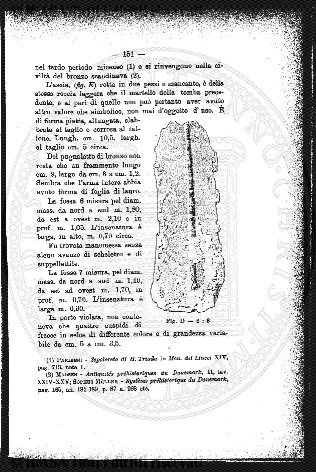 — 151 —
nel tardo periodo miceneo (1) e si rinvengono nella ci-
viltà del bronzo scandinava (2).
L'ascia, (fig. E) rotta in due pezzi e mancante, è della
stessa roccia leggera che il martello della tomba prece-
dente, e al pari di quello non può pertanto aver avuto
altro valore che simbolico, non mai d'oggetto d'uso. È
di forma piatta, allungata, slab-
brata al taglio e corrosa al tal-
lone. Lungh. cm. 10,5, largh.
al taglio cm. 5 circa.
Del pugnaletto di bronzo non
resta che un frammento lungo
cm. 9, largo da cm. 3 a cm. 1,2.
Sembra che l'arma intera abbia
avuto forma di foglia di lauro.
La fossa 6 misura pel diam.
mass. da nord a sud m. 1,80,
da est a ovest m. 2,10 e in
prof. m. 1,05. L'insenatura è
larga, in alto, m. 0,70 circa.
Fu trovata manomessa senza
alcun avanzo di scheletro e di
suppellettile.
La fossa 7 misura, pel diam.
mass. da nord a sud m. 1,40,
da est ad ovest m. 1,70, in
prof. m. 0,70. L'insenatura è
larga m. 0,90.
In parte violata, non conte-
neva che quattro cuspidi di
freccie in selce di differente colore e di grandezza varia-
bile da cm. 5 a cm. 3,5.
Fig. D — 2 : 3
(1) - Sepolcreto di H. Triada in Mon. dei Lincei XIV,
pag. 713, nota 1.
(2) Madsen - Antiquités préhistoriques du Danemark, II, tav.
XXIV-XXV; Sophus Müller - Système préhistorique du Danemark,